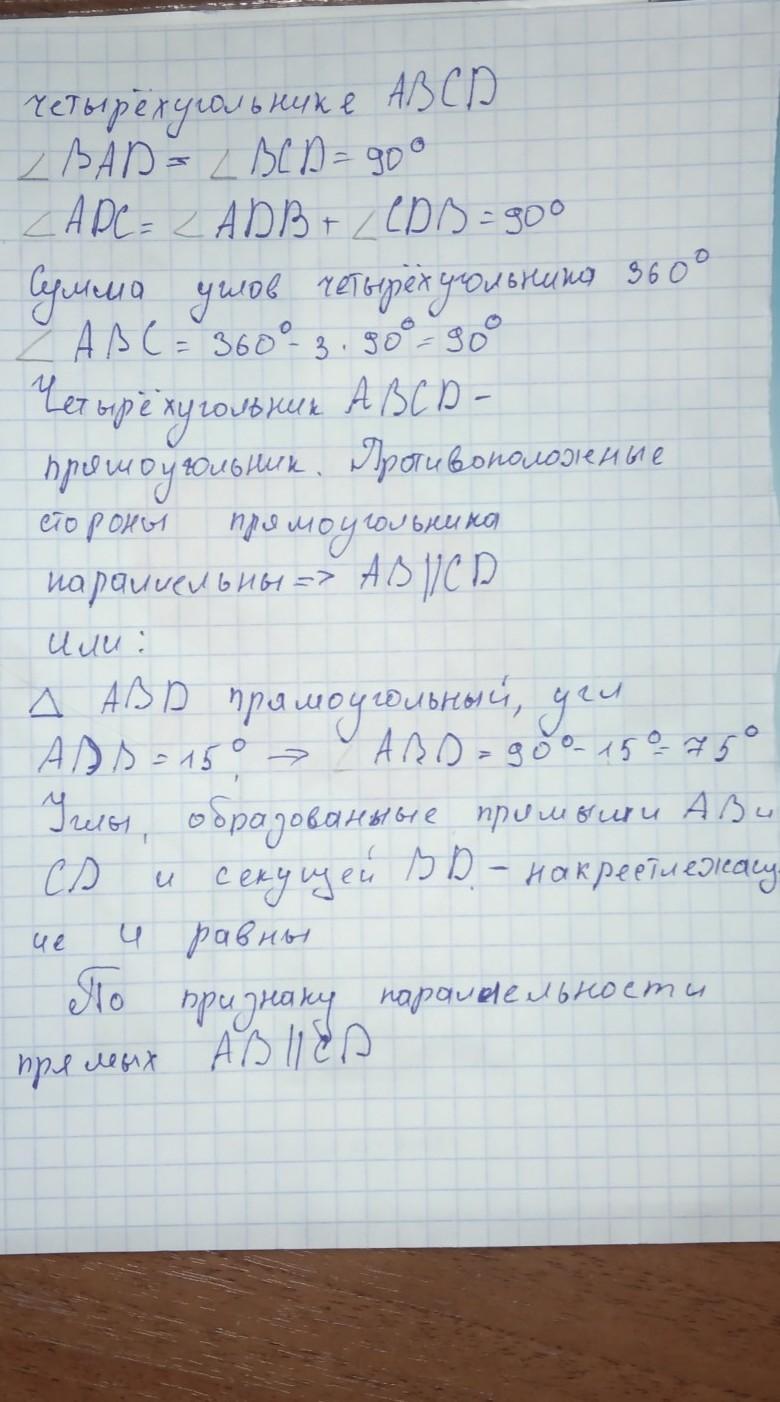 четырёхугольнике ABCD
∠BAD = ∠BCD = 90°
∠ADC = ∠ADB + ∠CDB = 90°
Сумма углов четырёхугольника 360°
∠ABC = 360° - 3 · 90° = 90°
Четырёхугольник ABCD -
прямоугольник. Противоположные
стороны прямоугольника
параллельны => AB||CD
Или:
△ ABD прямоугольный, угл
ADB = 15° → ∠ABD = 90° - 15° = 75°
Углы, образованные прямыми AB и
CD и секущей BD - накрестлежащ
ие и равны
По признаку параллельности
прямых AB||CD